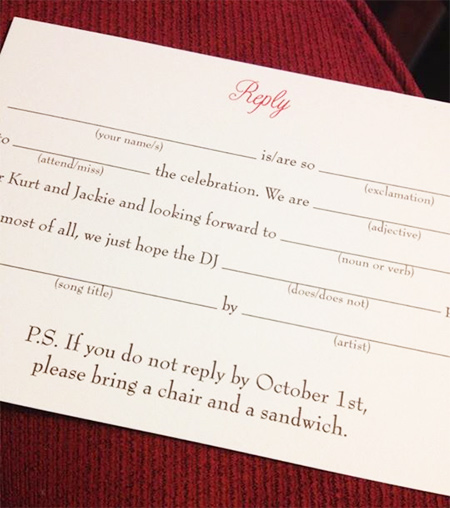 Reply
is/are so
(your name/s) (exclamation)
to the celebration. We are
(attend/miss) (adjective)
Kurt and Jackie and looking forward to
(noun or verb)
most of all, we just hope the DJ
(does/does not)
by
(song title) (artist)
P.S. If you do not reply by October 1st,
please bring a chair and a sandwich.